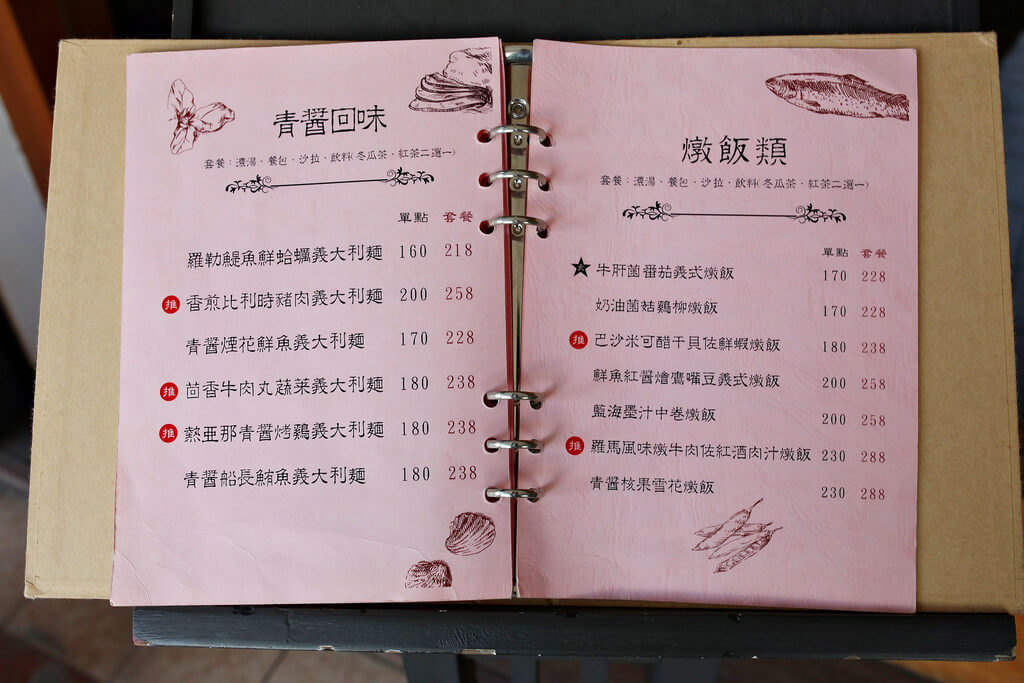 青醬回味
套餐：濃湯、餐包、沙拉、飲料(冬瓜茶、紅茶二選一)
單點 套餐
羅勒鯷魚鮮蛤蠣義大利麵 160 218
推 香煎比利時豬肉義大利麵 200 258
青醬煙花鮮魚義大利麵 170 228
推 茴香牛肉丸蔬菜義大利麵 180 238
推 熱亜那青醬烤鷄義大利麵 180 238
青醬船長鮪魚義大利麵 180 238
燉飯類
套餐：濃湯、餐包、沙拉、飲料(冬瓜茶、紅茶二選一)
單點 套餐
牛肝菌番茄義式燉飯 170 228
奶油菌菇鷄柳燉飯 170 228
推 巴沙米可醋干貝佐鮮蝦燉飯 180 238
鮮魚紅醬燴鷹嘴豆義式燉飯 200 258
藍海墨汁中卷燉飯 200 258
推 羅馬風味燉牛肉佐紅酒肉汁燉飯 230 288
青醬核果雪花燉飯 230 288